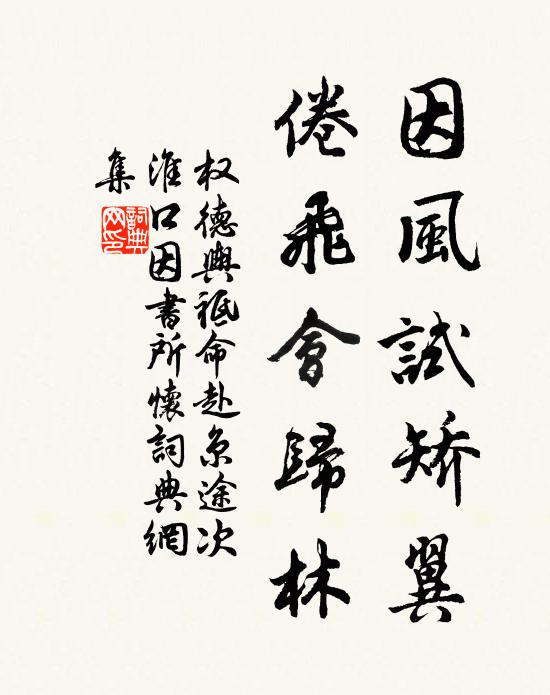 因風試矯翼
倦飛會歸林
权德輿祗命赴京途次
淮口因書所懷詞典網
集
詞典
网印